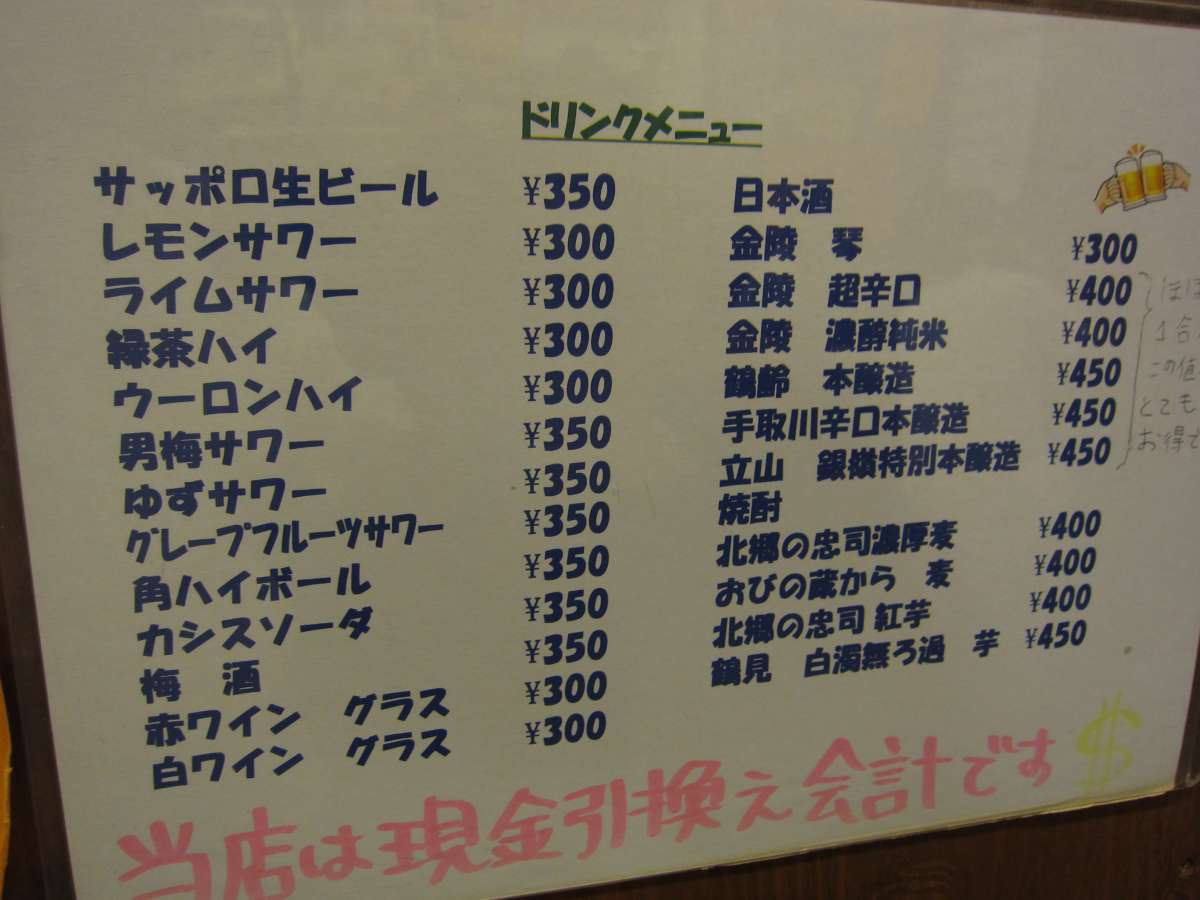 ドリンクメニュー
サッポロ生ビール ¥350
レモンサワー ¥300
ライムサワー ¥300
緑茶ハイ ¥300
ウーロンハイ ¥300
男梅サワー ¥350
ゆずサワー ¥350
グレープフルーツサワー ¥350
角ハイボール ¥350
カシスソーダ ¥350
梅 酒 ¥350
赤ワイン グラス ¥300
白ワイン グラス ¥300
日本酒
金陵 琴 ¥300
金陵 超辛口 ¥400
金陵 濃醇純米 ¥400
鶴齢 本醸造 ¥450
手取川辛口本醸造 ¥450
立山 銀嶺特別本醸造 ¥450
ほぼ
1合
この値
とても
お得
焼酎
北郷の忠司濃厚麦 ¥400
おびの蔵から 麦 ¥400
北郷の忠司 紅芋 ¥400
鶴見 白濁無ろ過 芋 ¥450
当店は現金引換え会計です $